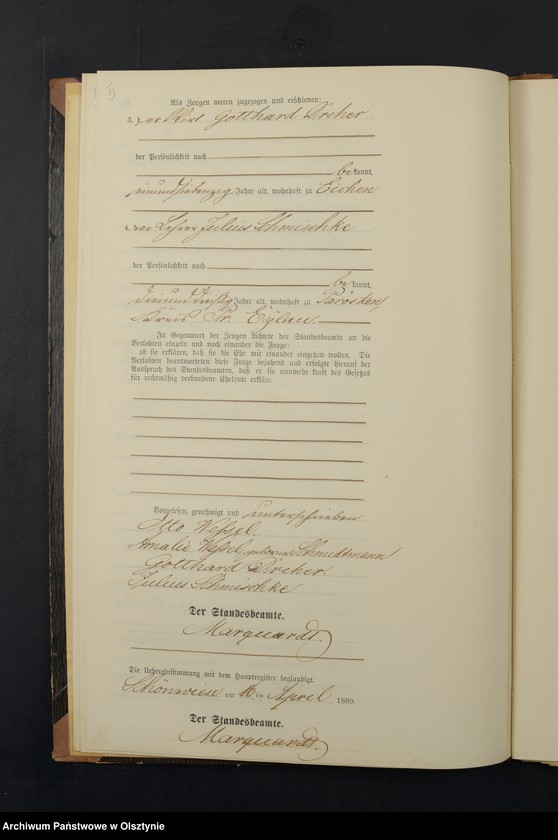 Als Zeugen waren zugezogen und erschienen:
3. der Wirt Gotthard Dreher
der Persönlichkeit nach
be kannt,
einundsiebenzig Jahre alt, wohnhaft zu Eichen
4. der Lehrer Julius Schmischke
der Persönlichkeit nach
be kannt,
Jahre alt, wohnhaft zu Parösken
Kreis Pr. Eylau.
In Gegenwart der Zeugen richtete der Standesbeamte an die
Verlobten einzeln und nach einander die Frage:
ob sie erklären, daß sie die Ehe mit einander eingehen wollen. Die
Verlobten beantworteten diese Frage bejahend und erfolgte hierauf der
Ausspruch des Standesbeamten, daß er sie nunmehr kraft des Gesetzes
für rechtmäßig verbundene Eheleute erkläre.
Vorgelesen, genehmigt und unterschrieben.
Otto Wessel.
Amalie Wessel, geborene Schmidtmann
Gotthard Dreher.
Julius Schmischke
Der Standesbeamte.
Marquardt.
Die Uebereinstimmung mit dem Hauptregister beglaubigt.
Schönwiese am 16 ten April 1889.
Der Standesbeamte.
Marquardt.
Archiwum Państwowe w Olsztynie